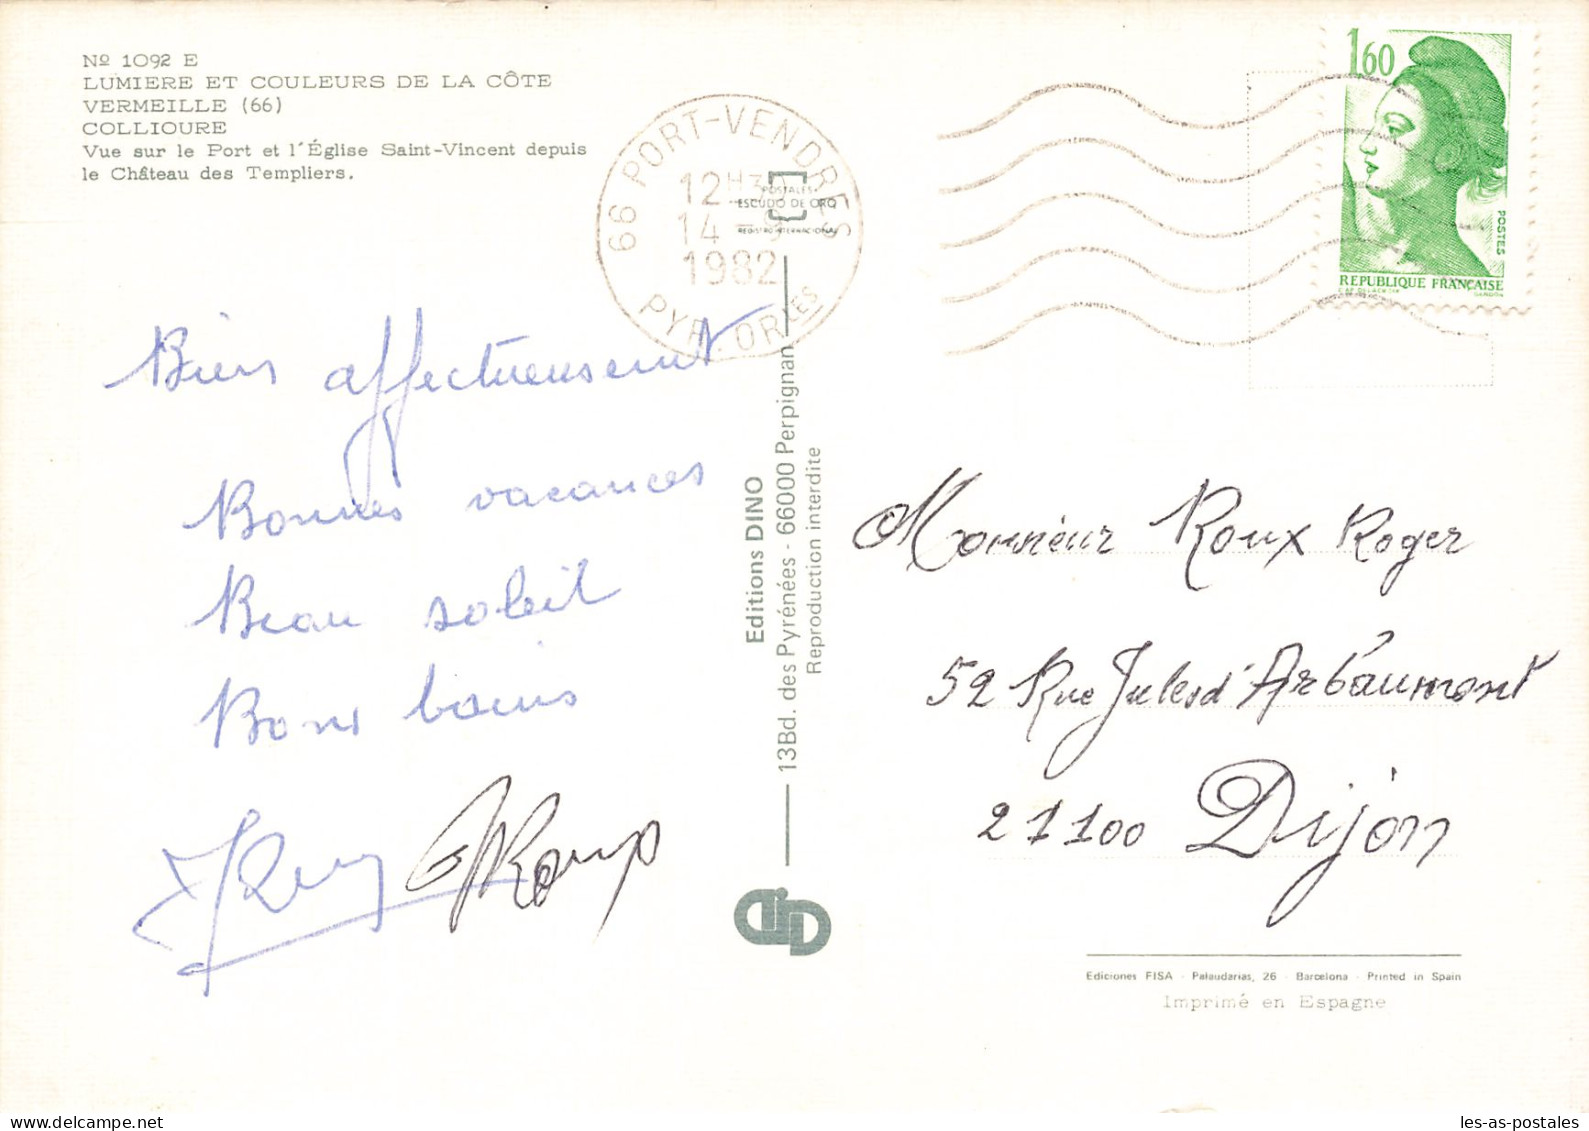 Nº 1092 E
LUMIERE ET COULEURS DE LA CÔTE
VERMEILLE (66)
COLLIOURE
Vue sur le Port et l'Église Saint-Vincent depuis
le Château des Templiers.
66 PORT-VENDRES
12H
14-9
1982
PYR.ORLES
POSTALES
ESCUDO DE ORO
REGISTRO INTERNACIONAL
1,60
POSTES
REPUBLIQUE FRANÇAISE
Bien affectueusement
Bonnes vacances
Beau soleil
Bons bains
Editions DINO
13Bd. des Pyrénées - 66000 Perpignan
Reproduction interdite
Monsieur Roux Roger
52 Rue Jules d'Arbaumont
21100 Dijon
Ediciones FISA - Palaudarias, 26 - Barcelona - Printed in Spain
Imprimé en Espagne
les-as-postales